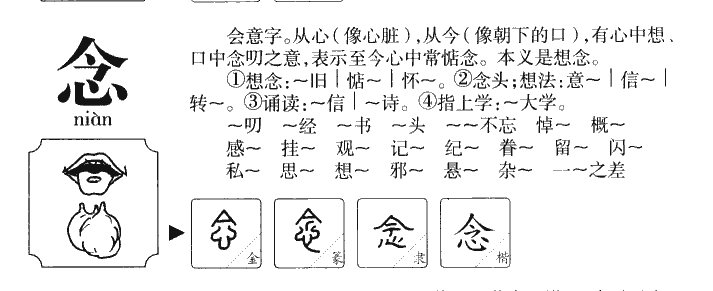 念
niàn
会意字。从心(像心脏),从今(像朝下的口),有心中想、
口中念叨之意,表示至今心中常惦念。本义是想念。
①想念:～旧|惦～|怀～。②念头;想法:意～|信～|
转～。③诵读:～信|～诗。④指上学:～大学。
～叨 ～经 ～书 ～头 ～～不忘 悼～ 概～
感～ 挂～ 观～ 记～ 纪～ 眷～ 留～ 闪～
私～ 思～ 想～ 邪～ 悬～ 杂～ 一～之差
金 篆 念 隶 念 楷